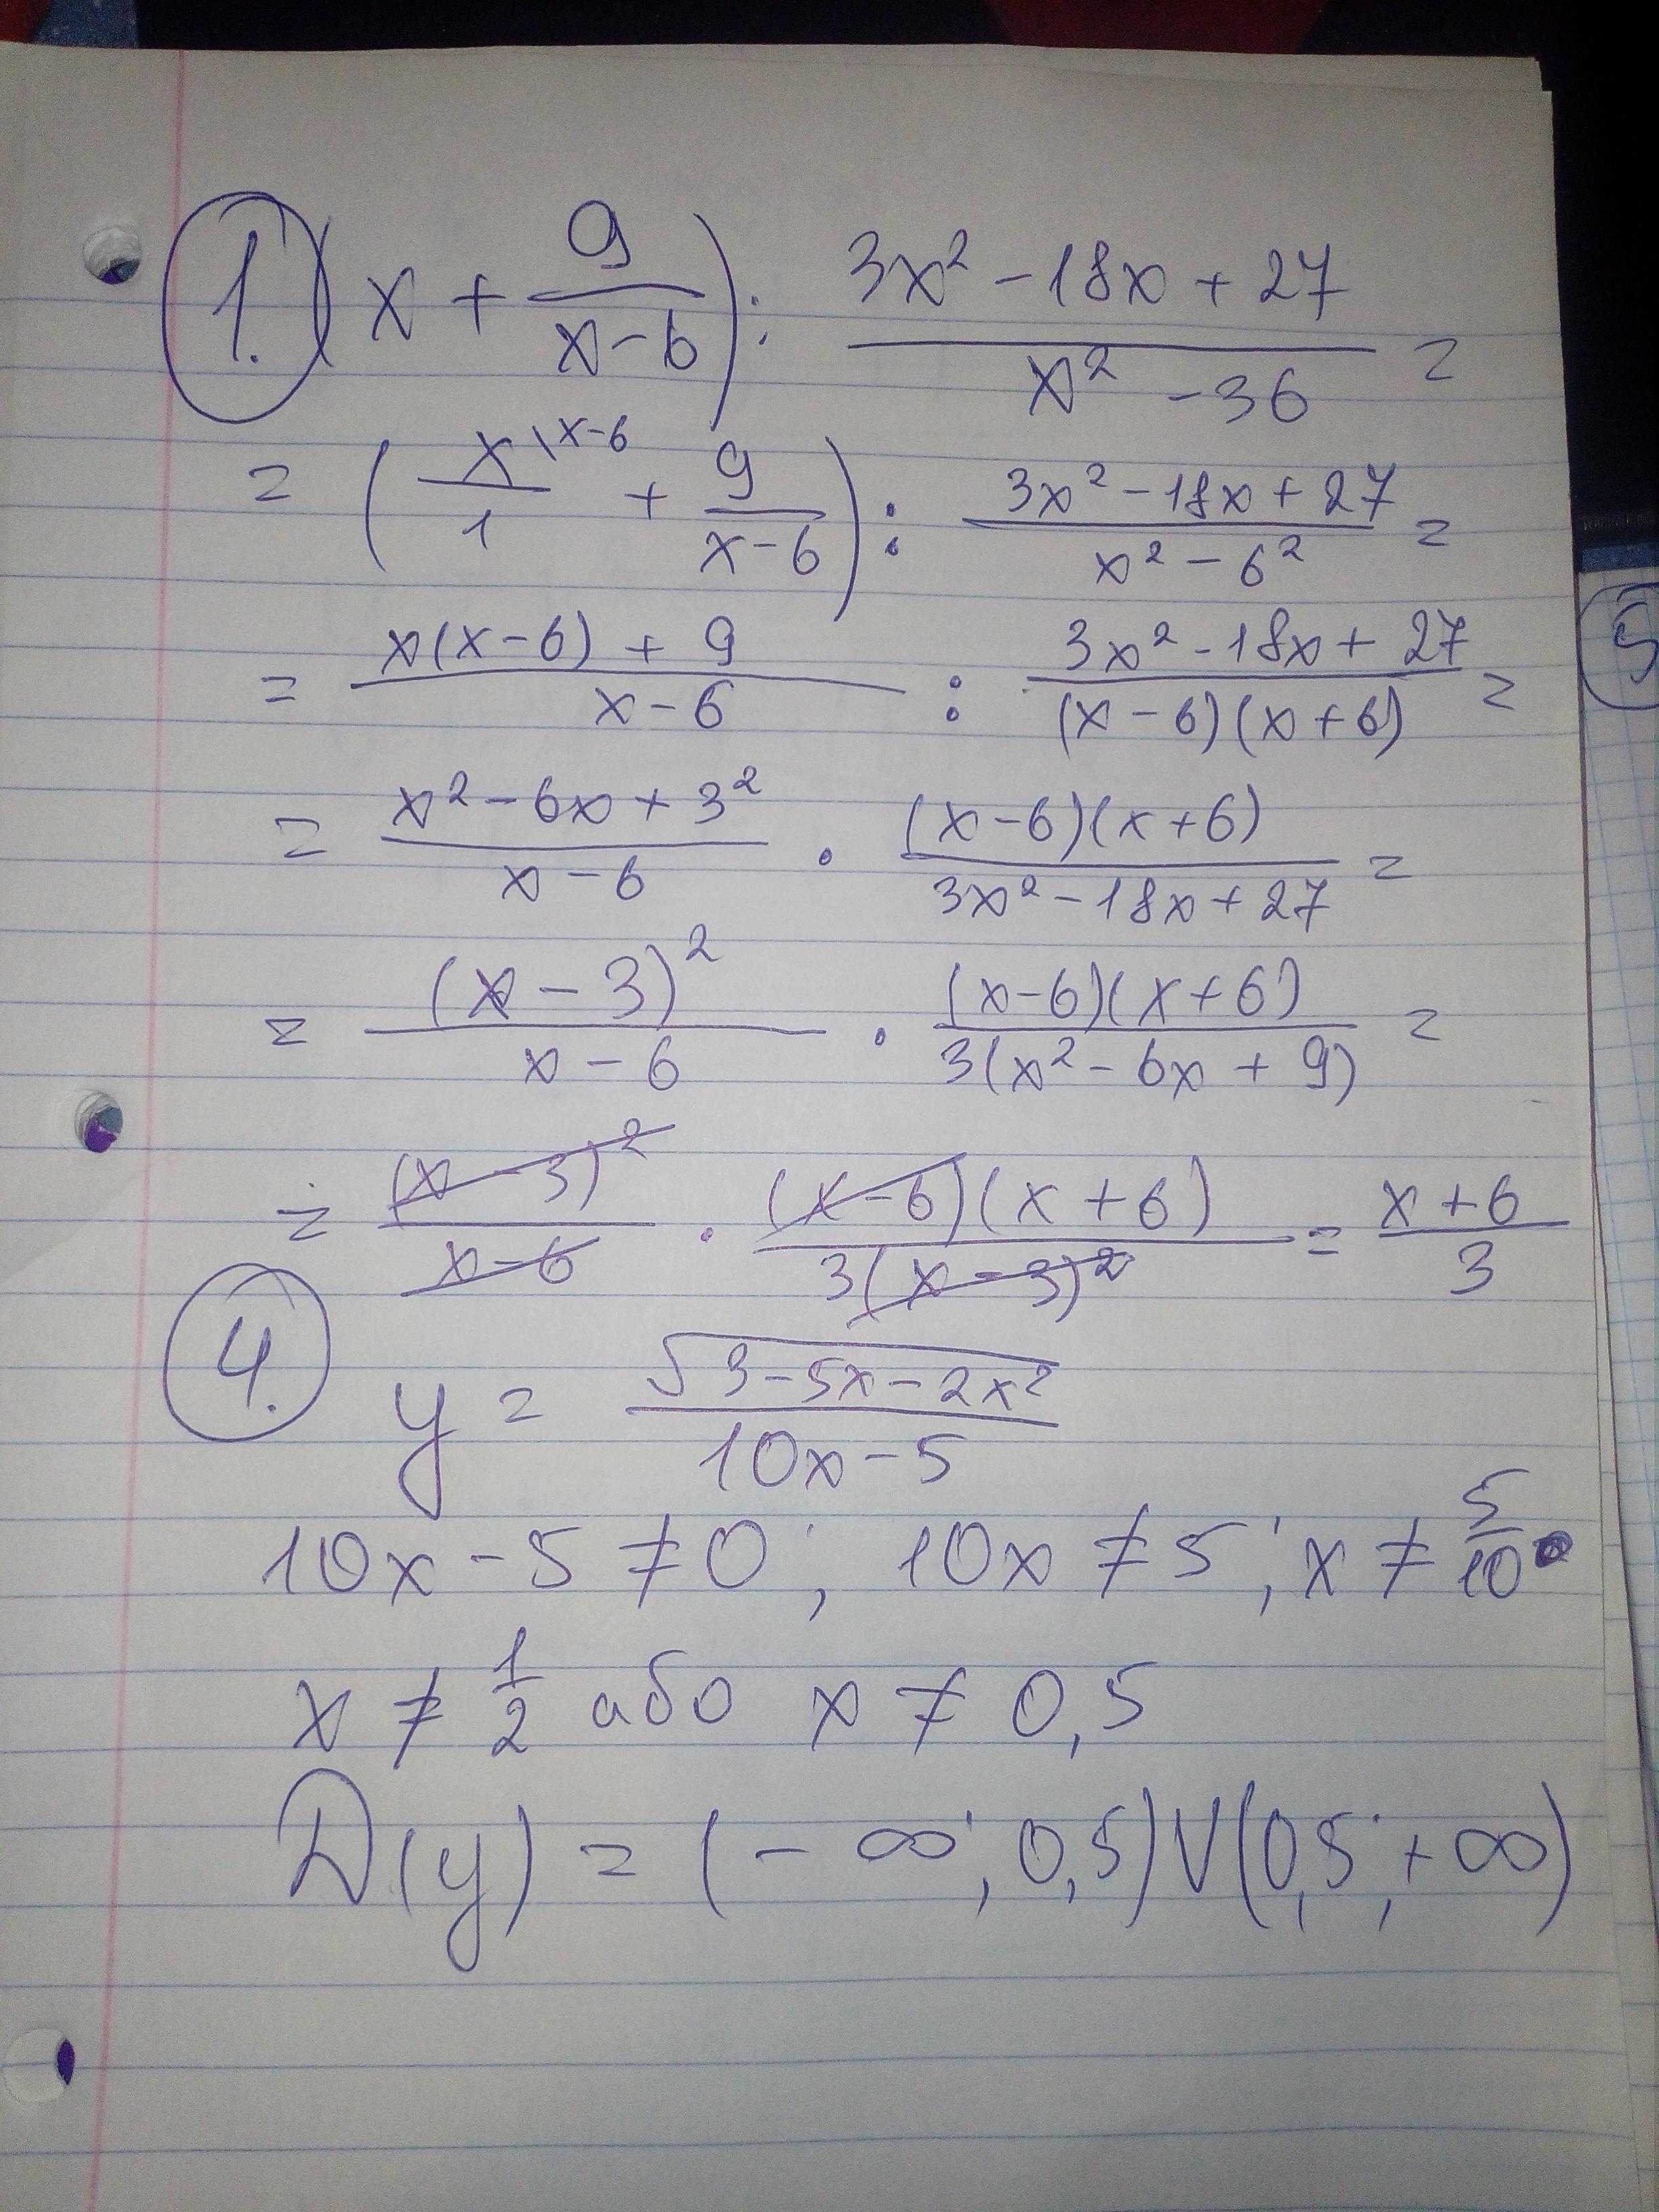 1. (x + 9/(x-6)) : (3x² - 18x + 27)/(x² - 36) =
= (x/1 \x-6 + 9/(x-6)) : (3x² - 18x + 27)/(x² - 6²) =
= (x(x-6) + 9)/(x-6) : (3x² - 18x + 27)/((x-6)(x+6)) =
= (x² - 6x + 3²)/(x-6) · ((x-6)(x+6))/(3x² - 18x + 27) =
= (x-3)²/(x-6) · ((x-6)(x+6))/(3(x² - 6x + 9)) =
= (x-3)²/(x-6) · ((x-6)(x+6))/(3(x-3)²) = (x+6)/3
4. y = √(3-5x-2x²)/(10x-5)
10x - 5 ≠ 0; 10x ≠ 5; x ≠ 5/10
x ≠ 1/2 або x ≠ 0,5
D(y) = (-∞; 0,5) V (0,5; +∞)
5